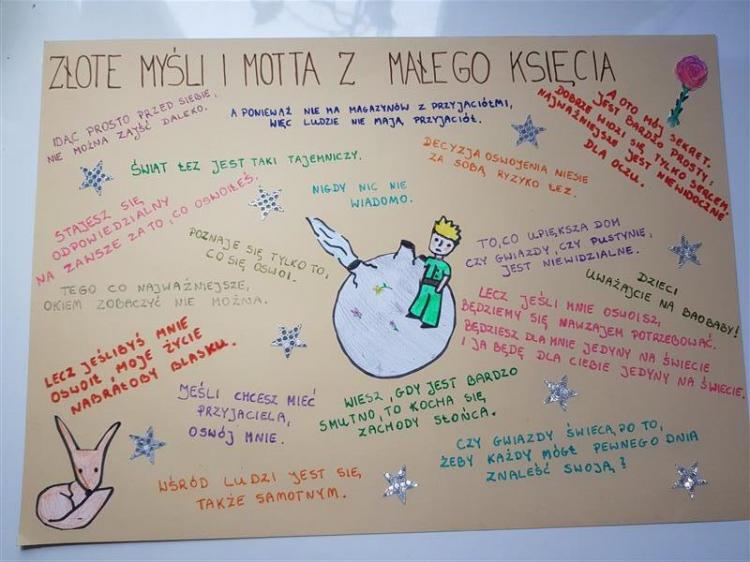 ZŁOTE MYŚLI I MOTTA Z MAŁEGO KSIĘCIA
IDĄC PROSTO PRZED SIEBIE,
NIE MOŻNA ZAJŚĆ DALEKO.
A PONIEWAŻ NIE MA MAGAZYNÓW Z PRZYJACIÓŁMI,
WIĘC LUDZIE NIE MAJĄ PRZYJACIÓŁ.
A OTO MÓJ SEKRET.
JEST BARDZO PROSTY:
DOBRZE WIDZI SIĘ TYLKO SERCEM.
NAJWAŻNIEJSZE JEST NIEWIDOCZNE
DLA OCZU.
ŚWIAT ŁEZ JEST TAKI TAJEMNICZY.
DECYZJA OSWOJENIA NIESIE
ZA SOBĄ RYZYKO ŁEZ.
STAJESZ SIĘ
ODPOWIEDZIALNY
NA ZAWSZE ZA TO, CO OSWOIŁEŚ.
NIGDY NIC NIE
WIADOMO.
POZNAJE SIĘ TYLKO TO,
CO SIĘ OSWOI.
TO, CO UPIĘKSZA DOM
CZY GWIAZDY, CZY PUSTYNIE,
JEST NIEWIDZIALNE.
DZIECI
UWAŻAJCIE NA BAOBABY!
TEGO CO NAJWAŻNIEJSZE,
OKIEM ZOBACZYĆ NIE MOŻNA.
LECZ JEŚLI MNIE OSWOISZ,
BĘDZIEMY SIĘ NAWZAJEM POTRZEBOWAĆ.
BĘDZIESZ DLA MNIE JEDYNY NA ŚWIECIE
I JA BĘDĘ DLA CIEBIE JEDYNY NA ŚWIECIE.
LECZ JEŚLIBYŚ MNIE
OSWOIŁ, MOJE ŻYCIE
NABRAŁOBY BLASKU.
JEŚLI CHCESZ MIEĆ
PRZYJACIELA,
OSWÓJ MNIE.
WIESZ, GDY JEST BARDZO
SMUTNO, TO KOCHA SIĘ
ZACHODY SŁOŃCA.
CZY GWIAZDY ŚWIECĄ PO TO,
ŻEBY KAŻDY MÓGŁ PEWNEGO DNIA
ZNALEŚĆ SWOJĄ?
WŚRÓD LUDZI JEST SIĘ
TAKŻE SAMOTNYM.